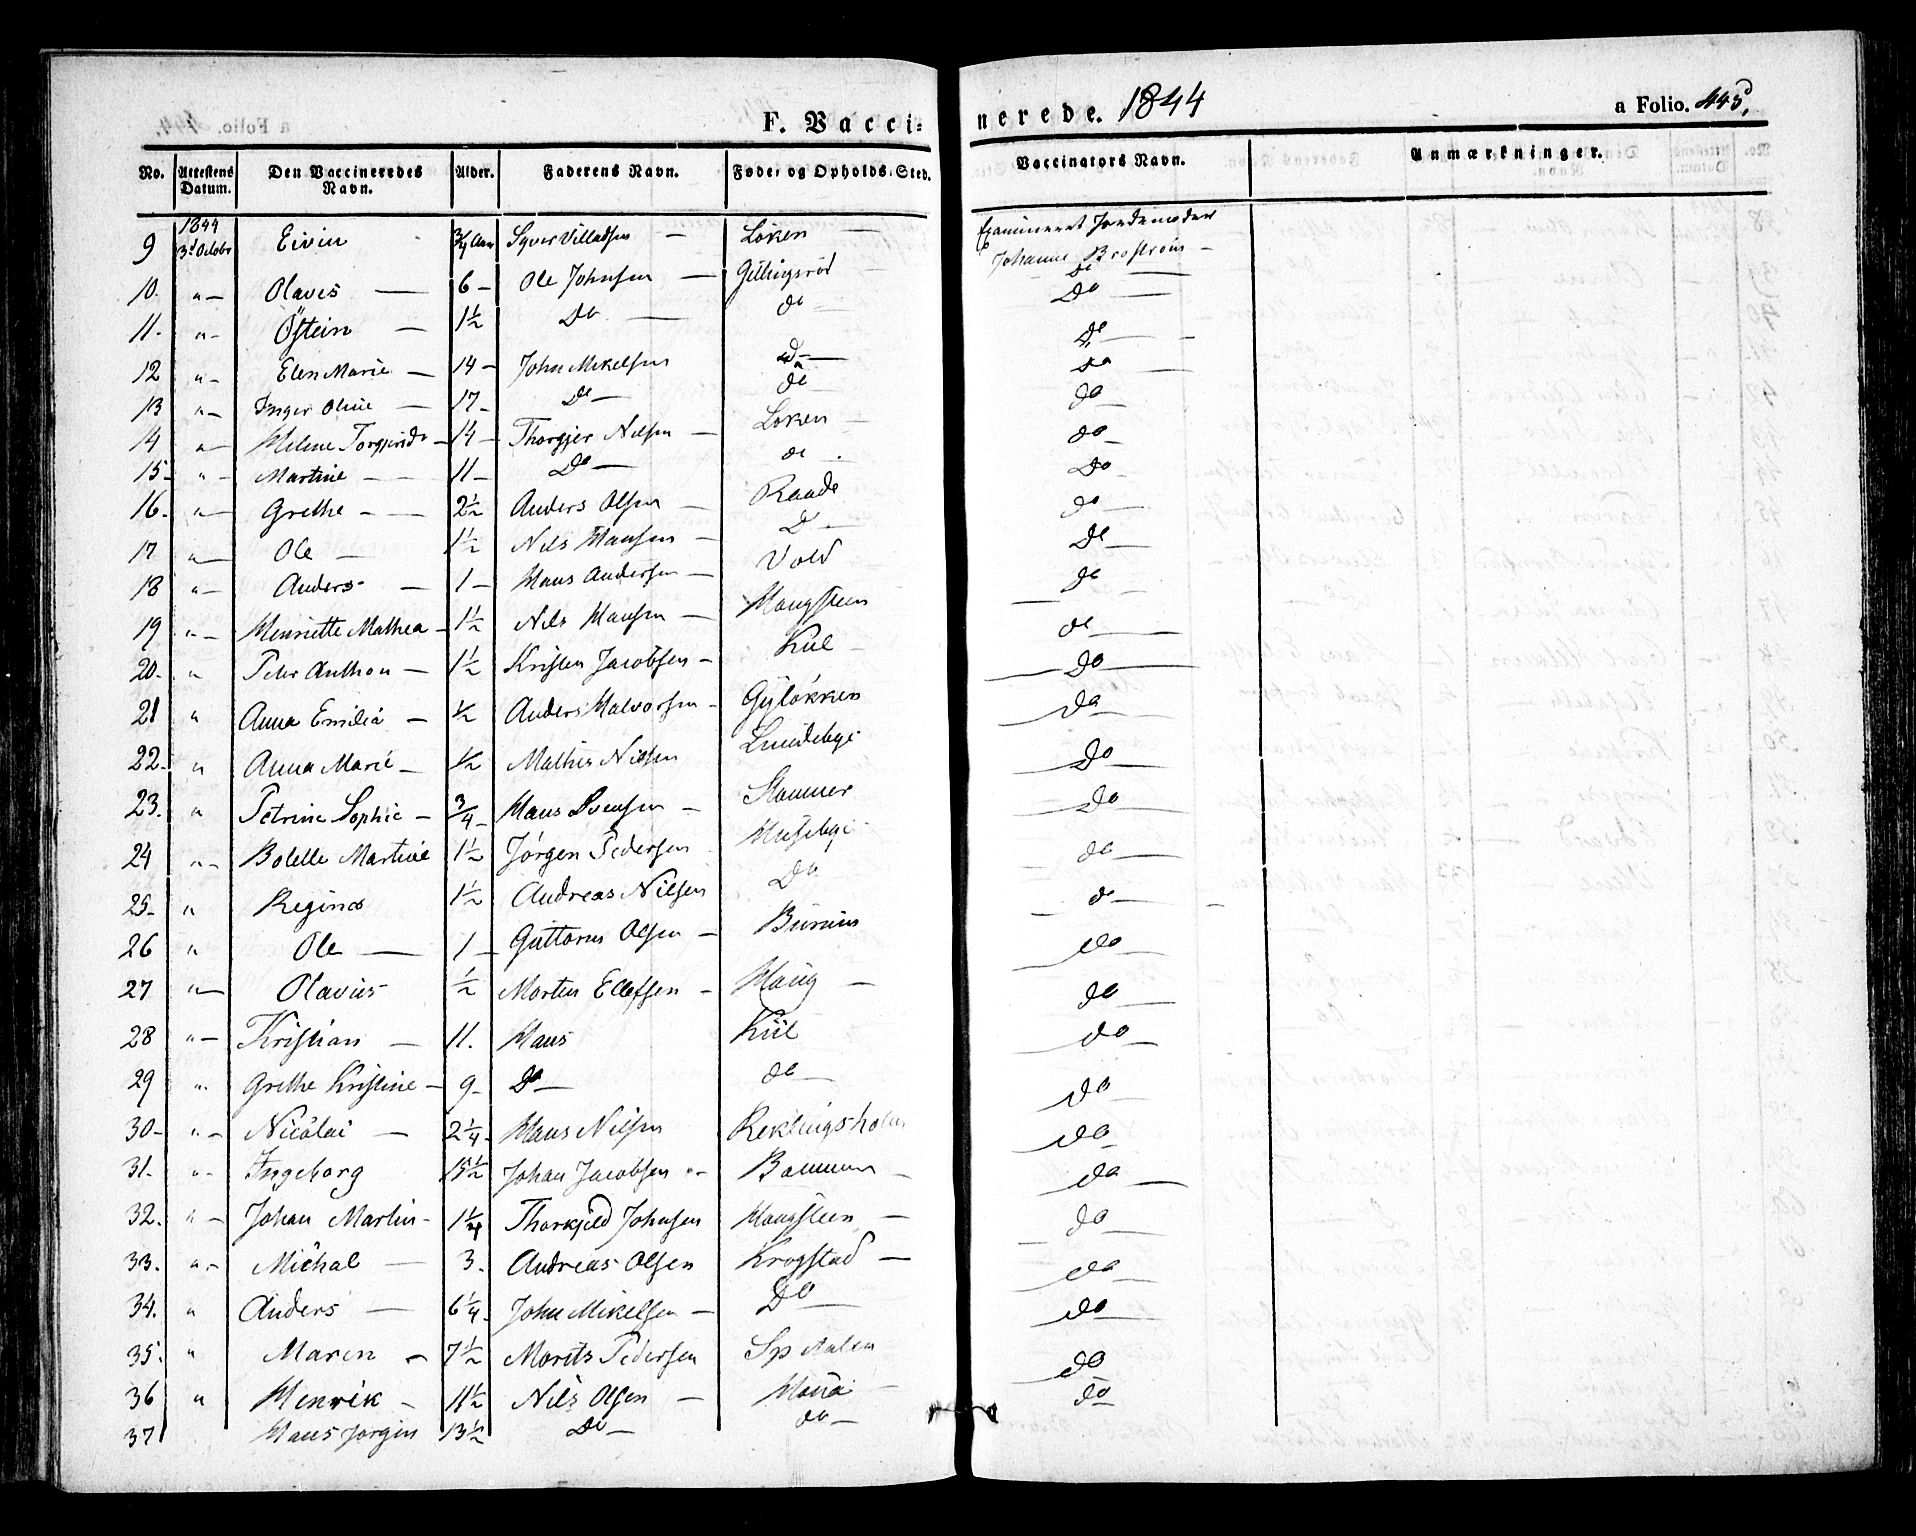 F. Vaccinerede. 1844 a Folio. 445.
No. Attestens Datum. Den Vaccineredes Navn. Alder. Faderens Navn. Føde- og Opholds-Sted. Vaccinators Navn. Anmærkninger.
9 1844 3d Octobr Eivin ¾ Aar Syver Villadsen — Løken — Examineret Jordemoder Johanne Brostrøm —
10. " — Olaves — 6 — Ole Johnsen — Gillingsrød Do —
11. " — Östein — 1½ Do — do — Do —
12 " — Elen Marie — 14 — John Mikelsen do — do —
13 " — Inger Oline — 17 — Do — do do —
14 " — Helene Torgjersd — 14 — Thorgjer Nilsen — Løken — do —
15 " — Martine — 11 — Do — do Do —
16. " — Grethe — 2½ Anders Olsen — Raade do —
17 " — Ole — 1½ Nils Hansen — Do — Do —
18 " — Anders — 1 — Hans Andersen — Vold do —
19 " — Henriette Mathea — 1½ Nils Hansen — Haugsteen do —
20. " Peter Anthon — 1½ Kristen Jacobsen — Kiil — Do —
21 " Anna Emilia — ½ Anders Halvorsen — Gyløkken Do —
22. " Anna Marie — ½ Mathis Nielsen Lundebye Do —
23. " Petrine Sophie — ¾ — Hans Svensen — Stammer Do —
24 " — Bolelle Martine 1½ Jörgen Pedersen Husebye do —
25 — " Regina 1½ Andreas Nilsen Do do —
26 " Ole — 1 — Guttorm Olsen — Burum do —
27 " — Olavus ½ Morten Ellefsen — Haug — do —
28 " — Kristian — 11. Hans Kiil do —
29 " Grethe Kristine — 9 — Do — do — do —
30 — " — Nicolai — 2¼ — Hans Nilsen Reklingsholm do —
31. " — Ingeborg 15½ Johan Jacobsen — Bammen — do —
32. " — Johan Martin — 1¼ Thorkjeld Johnsen Haugsteen — do —
33. " — Michal — 3. Andreas Olsen Krogstad — do —
34. " Anders — 6¼ — John Mikelsen — Do — do —
35. " Maren — 7½ Morits Pedersen Sp dalen do —
36 " Henrik — 11½ Nils Olsen — do
37 Hans Jørgin 13½ Do — do —